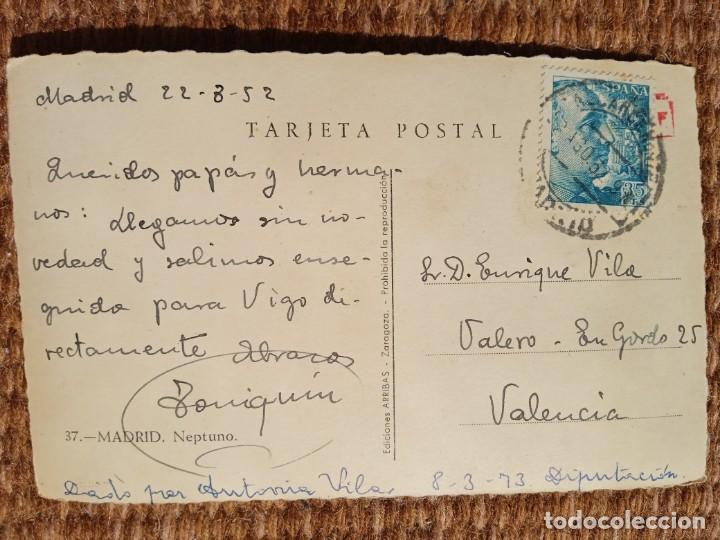 Madrid 22-8-52
TARJETA POSTAL
ESPAÑA
35
Queridos papás y herma-
nos: Llegamos sin no-
vedad y salimos ense-
guida para Vigo di-
rectamente Abrazos
37.—MADRID. Neptuno.
Ediciones ARRIBAS - Zaragoza. - Prohibida la reproducción
Sr. D. Enrique Vila
Valero - En Gordo 25
Valencia
Dado por Antonia Vila, 8-3-73 Diputación.
todocoleccion
todocoleccion.net